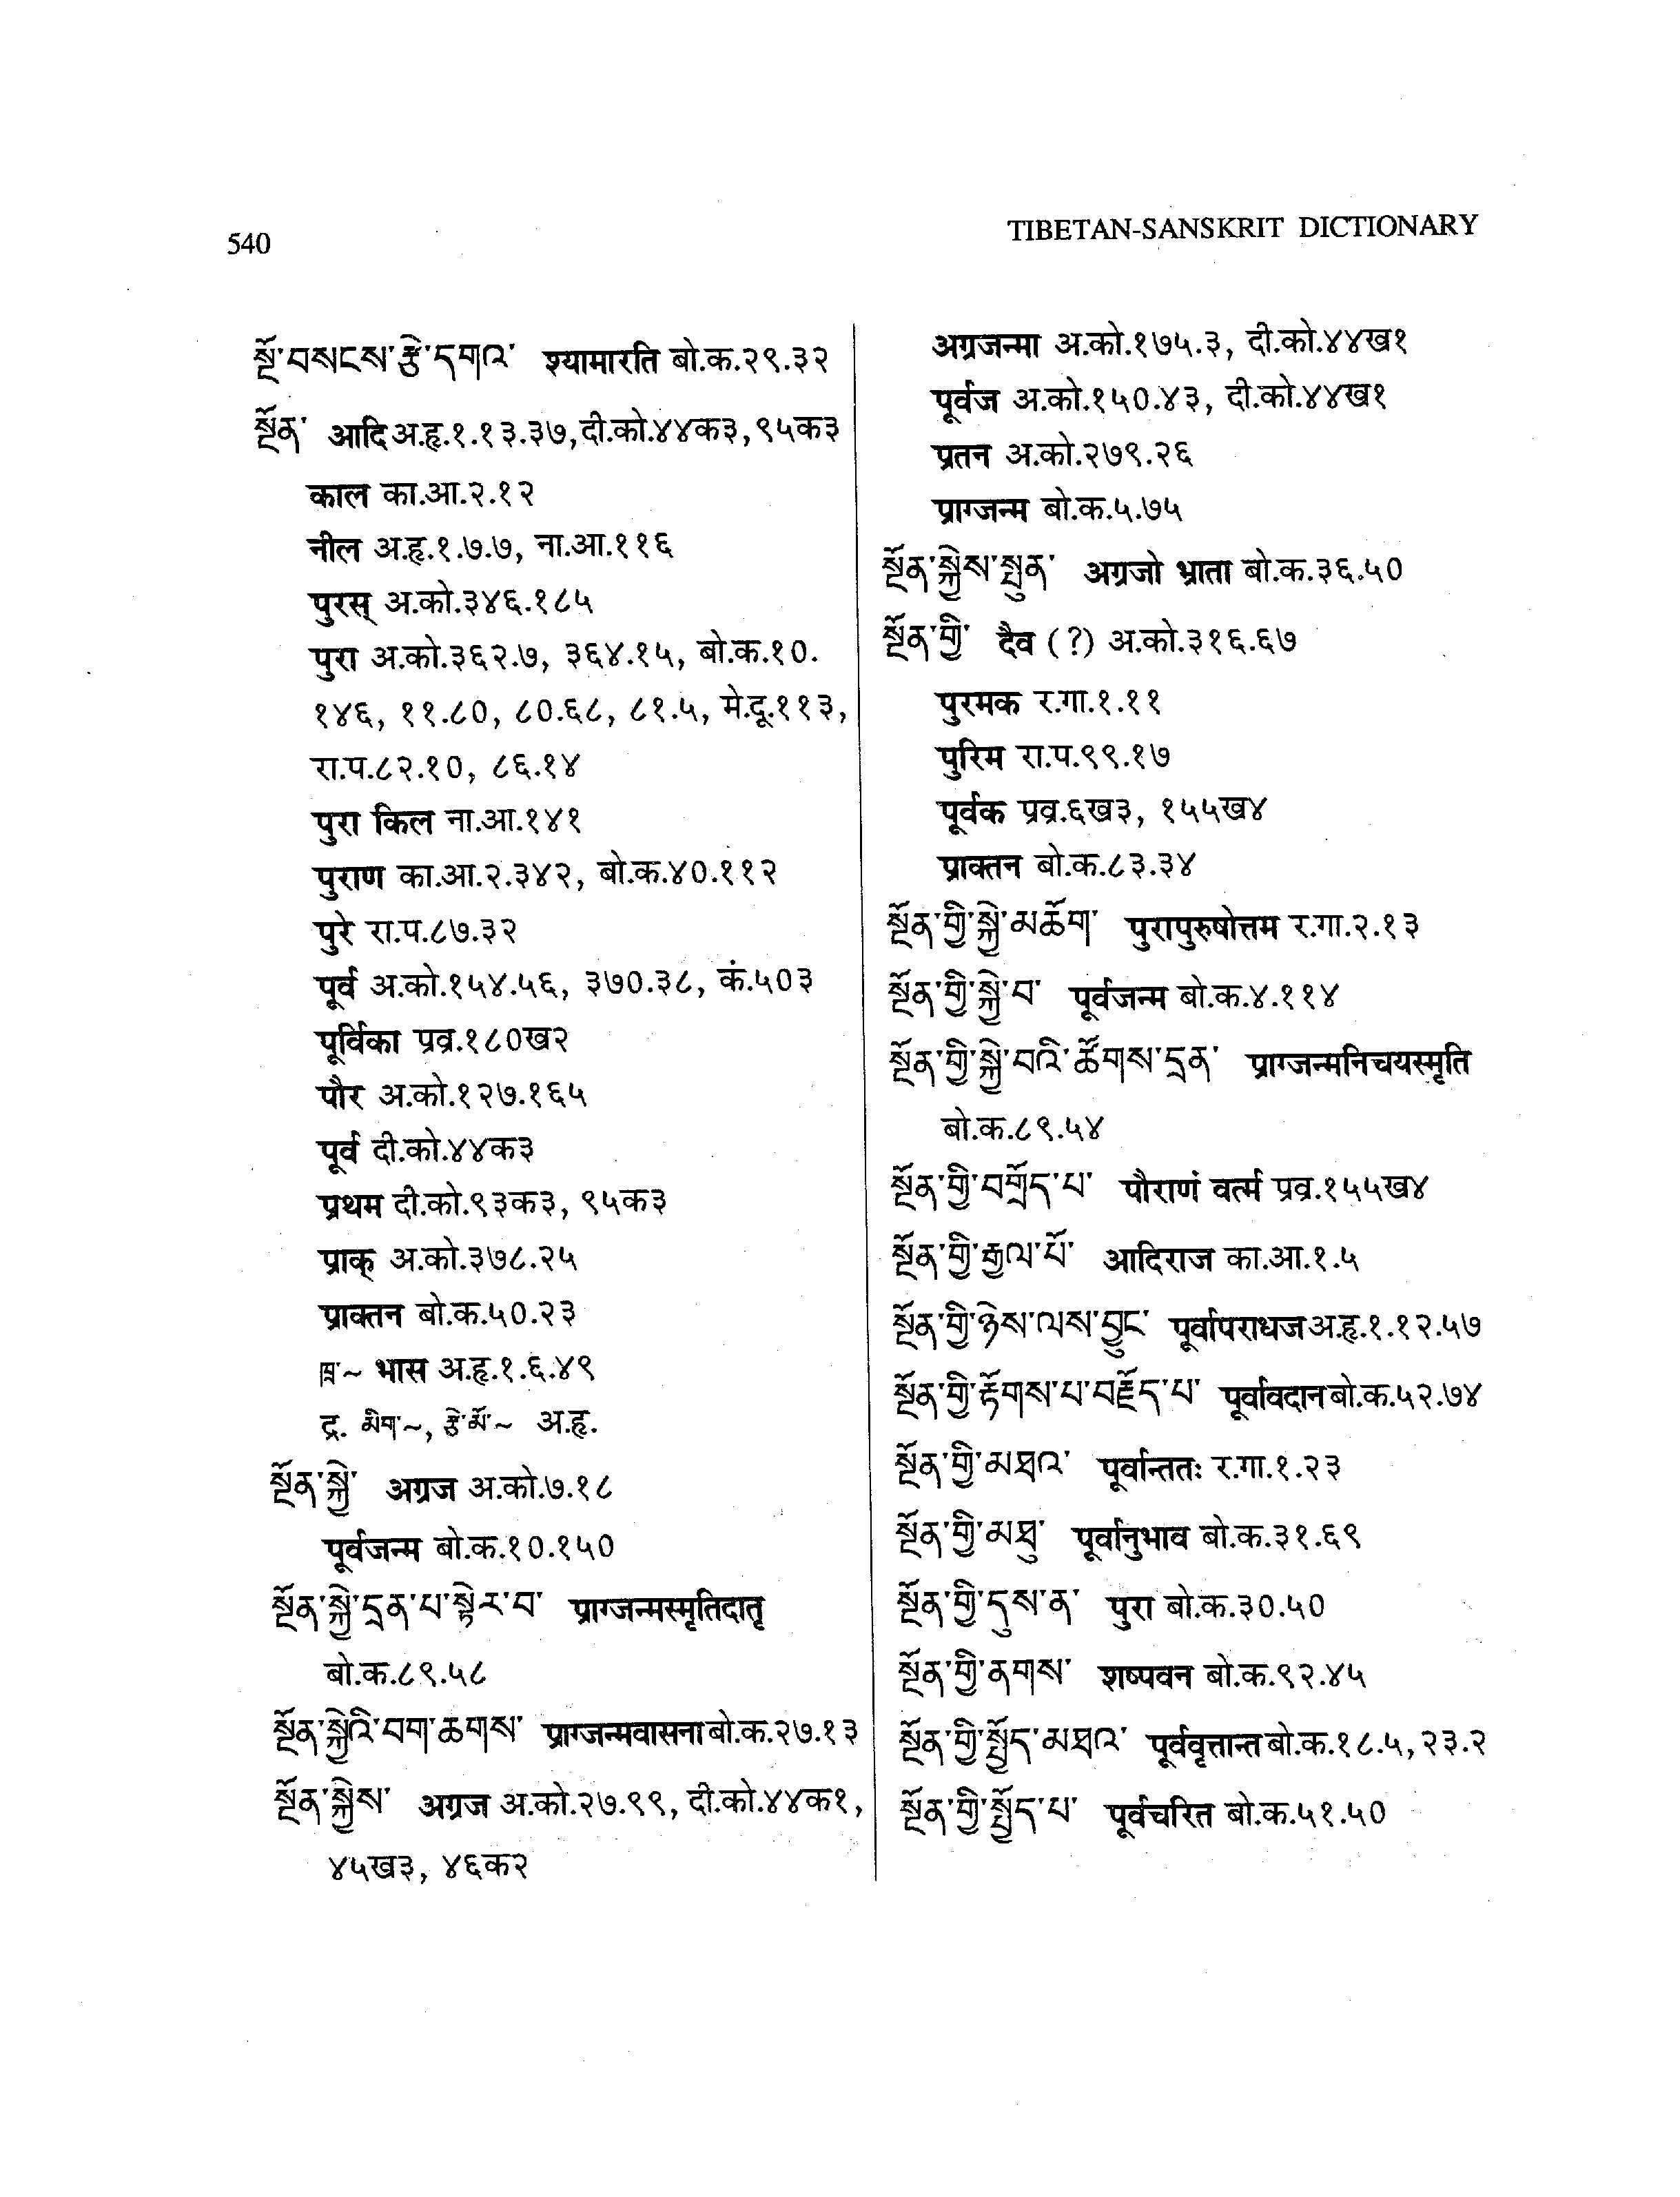 540
TIBETAN-SANSKRIT DICTIONARY
སྔོ་བསངས་རྩེ་དགའ་ श्यामारति बो.क.२९.३२
སྔོན་ आदि अ.हृ.१.१३.३७, दी.को.४४क३, ९५क३
काल का.आ.२.१२
नील अ.हृ.१.७.७, ना.आ.११६
पुरस् अ.को.३४६.१८५
पुरा अ.को.३६२.७, ३६४.१५, बो.क.१०.
१४६, ११.८०, ८०.६८, ८१.५, मे.दू.११३,
रा.प.८२.१०, ८६.१४
पुरा किल ना.आ.१४१
पुराण का.आ.२.३४२, बो.क.४०.११२
पुरे रा.प.८७.३२
पूर्व अ.को.१५४.५६, ३७०.३८, कं.५०३
पूर्विका प्रव्र.१८०ख२
पौर अ.को.१२७.१६५
पूर्व दी.को.४४क३
प्रथम दी.को.९३क३, ९५क३
प्राक् अ.को.३७८.२५
प्राक्तन बो.क.५०.२३
~ भास अ.हृ.१.६.४९
द्र. མིག་~, རྩེ་མོ་~ अ.हृ.
སྔོན་སྐྱེ་ अग्रज अ.को.७.१८
पूर्वजन्म बो.क.१०.१५०
སྔོན་སྐྱེ་དྲན་པ་སྟེར་བ་ प्राग्जन्मस्मृतिदातृ
बो.क.८९.५८
སྔོན་སྐྱེའི་བག་ཆགས་ प्राग्जन्मवासना बो.क.२७.१३
སྔོན་སྐྱེས་ अग्रज अ.को.२७.९९, दी.को.४४क१,
४५ख३, ४६क२
अग्रजन्मा अ.को.१७५.३, दी.को.४४ख१
पूर्वज अ.को.१५०.४३, दी.को.४४ख१
प्रतन अ.को.२७९.२६
प्राग्जन्म बो.क.५.७५
སྔོན་སྐྱེས་སྤུན་ अग्रजो भ्राता बो.क.३६.५०
སྔོན་གྱི་ दैव (?) अ.को.३१६.६७
पुरमक र.गा.१.११
पुरिम रा.प.९९.१७
पूर्वक प्रव्र.६ख३, १५५ख४
प्राक्तन बो.क.८३.३४
སྔོན་གྱི་སྐྱེ་མཆོག་ पुरापुरुषोत्तम र.गा.२.१३
སྔོན་གྱི་སྐྱེ་བ་ पूर्वजन्म बो.क.४.११४
སྔོན་གྱི་སྐྱེ་བའི་ཚོགས་དྲན་ प्राग्जन्मनिचयस्मृति
बो.क.८९.५४
སྔོན་གྱི་བགྲོད་པ་ पौराणं वर्त्म प्रव्र.१५५ख४
སྔོན་གྱི་རྒྱལ་པོ་ आदिराज का.आ.१.५
སྔོན་གྱི་ཉེས་ལས་བྱུང་ पूर्वापराधज अ.हृ.१.१२.५७
སྔོན་གྱི་རྟོགས་པ་བརྗོད་པ་ पूर्वावदान बो.क.५२.७४
སྔོན་གྱི་མཐའ་ पूर्वान्ततः र.गा.१.२३
སྔོན་གྱི་མཐུ་ पूर्वानुभाव बो.क.३१.६९
སྔོན་གྱི་དུས་ན་ पुरा बो.क.३०.५०
སྔོན་གྱི་ནགས་ शष्पवन बो.क.९२.४५
སྔོན་གྱི་སྤྱོད་མཐའ་ पूर्ववृत्तान्त बो.क.१८.५, २३.२
སྔོན་གྱི་སྤྱོད་པ་ पूर्वचरित बो.क.५१.५०